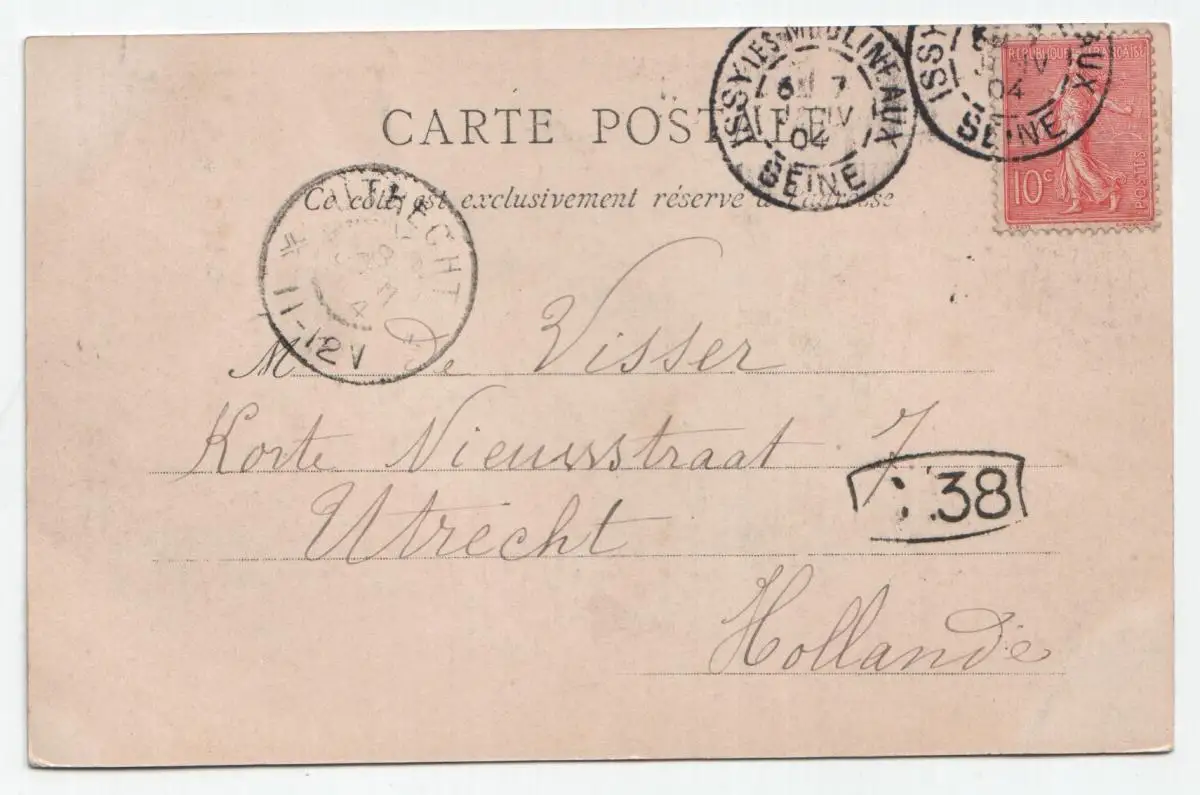 CARTE POSTALE
Ce côté est exclusivement réservé à l'adresse
ISSY-LES-MOULINEAUX
6E 7
JANV
04
SEINE
ISSY
04
SEINE
REPUBLIQUE FRANÇAISE
10c
POSTES
UTRECHT
4
11-12V
M de Visser
Korte Nieuwstraat 7
Utrecht
Hollande
38